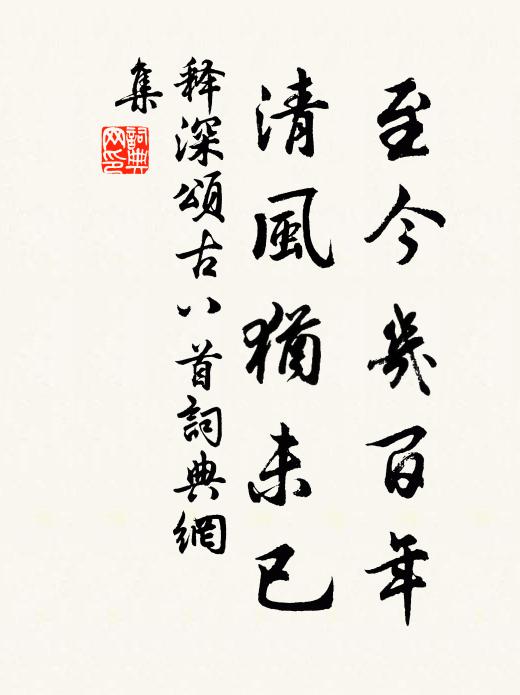 至今幾百年
清風猶未已
释深頌古八首詞典網
集
詞典網印